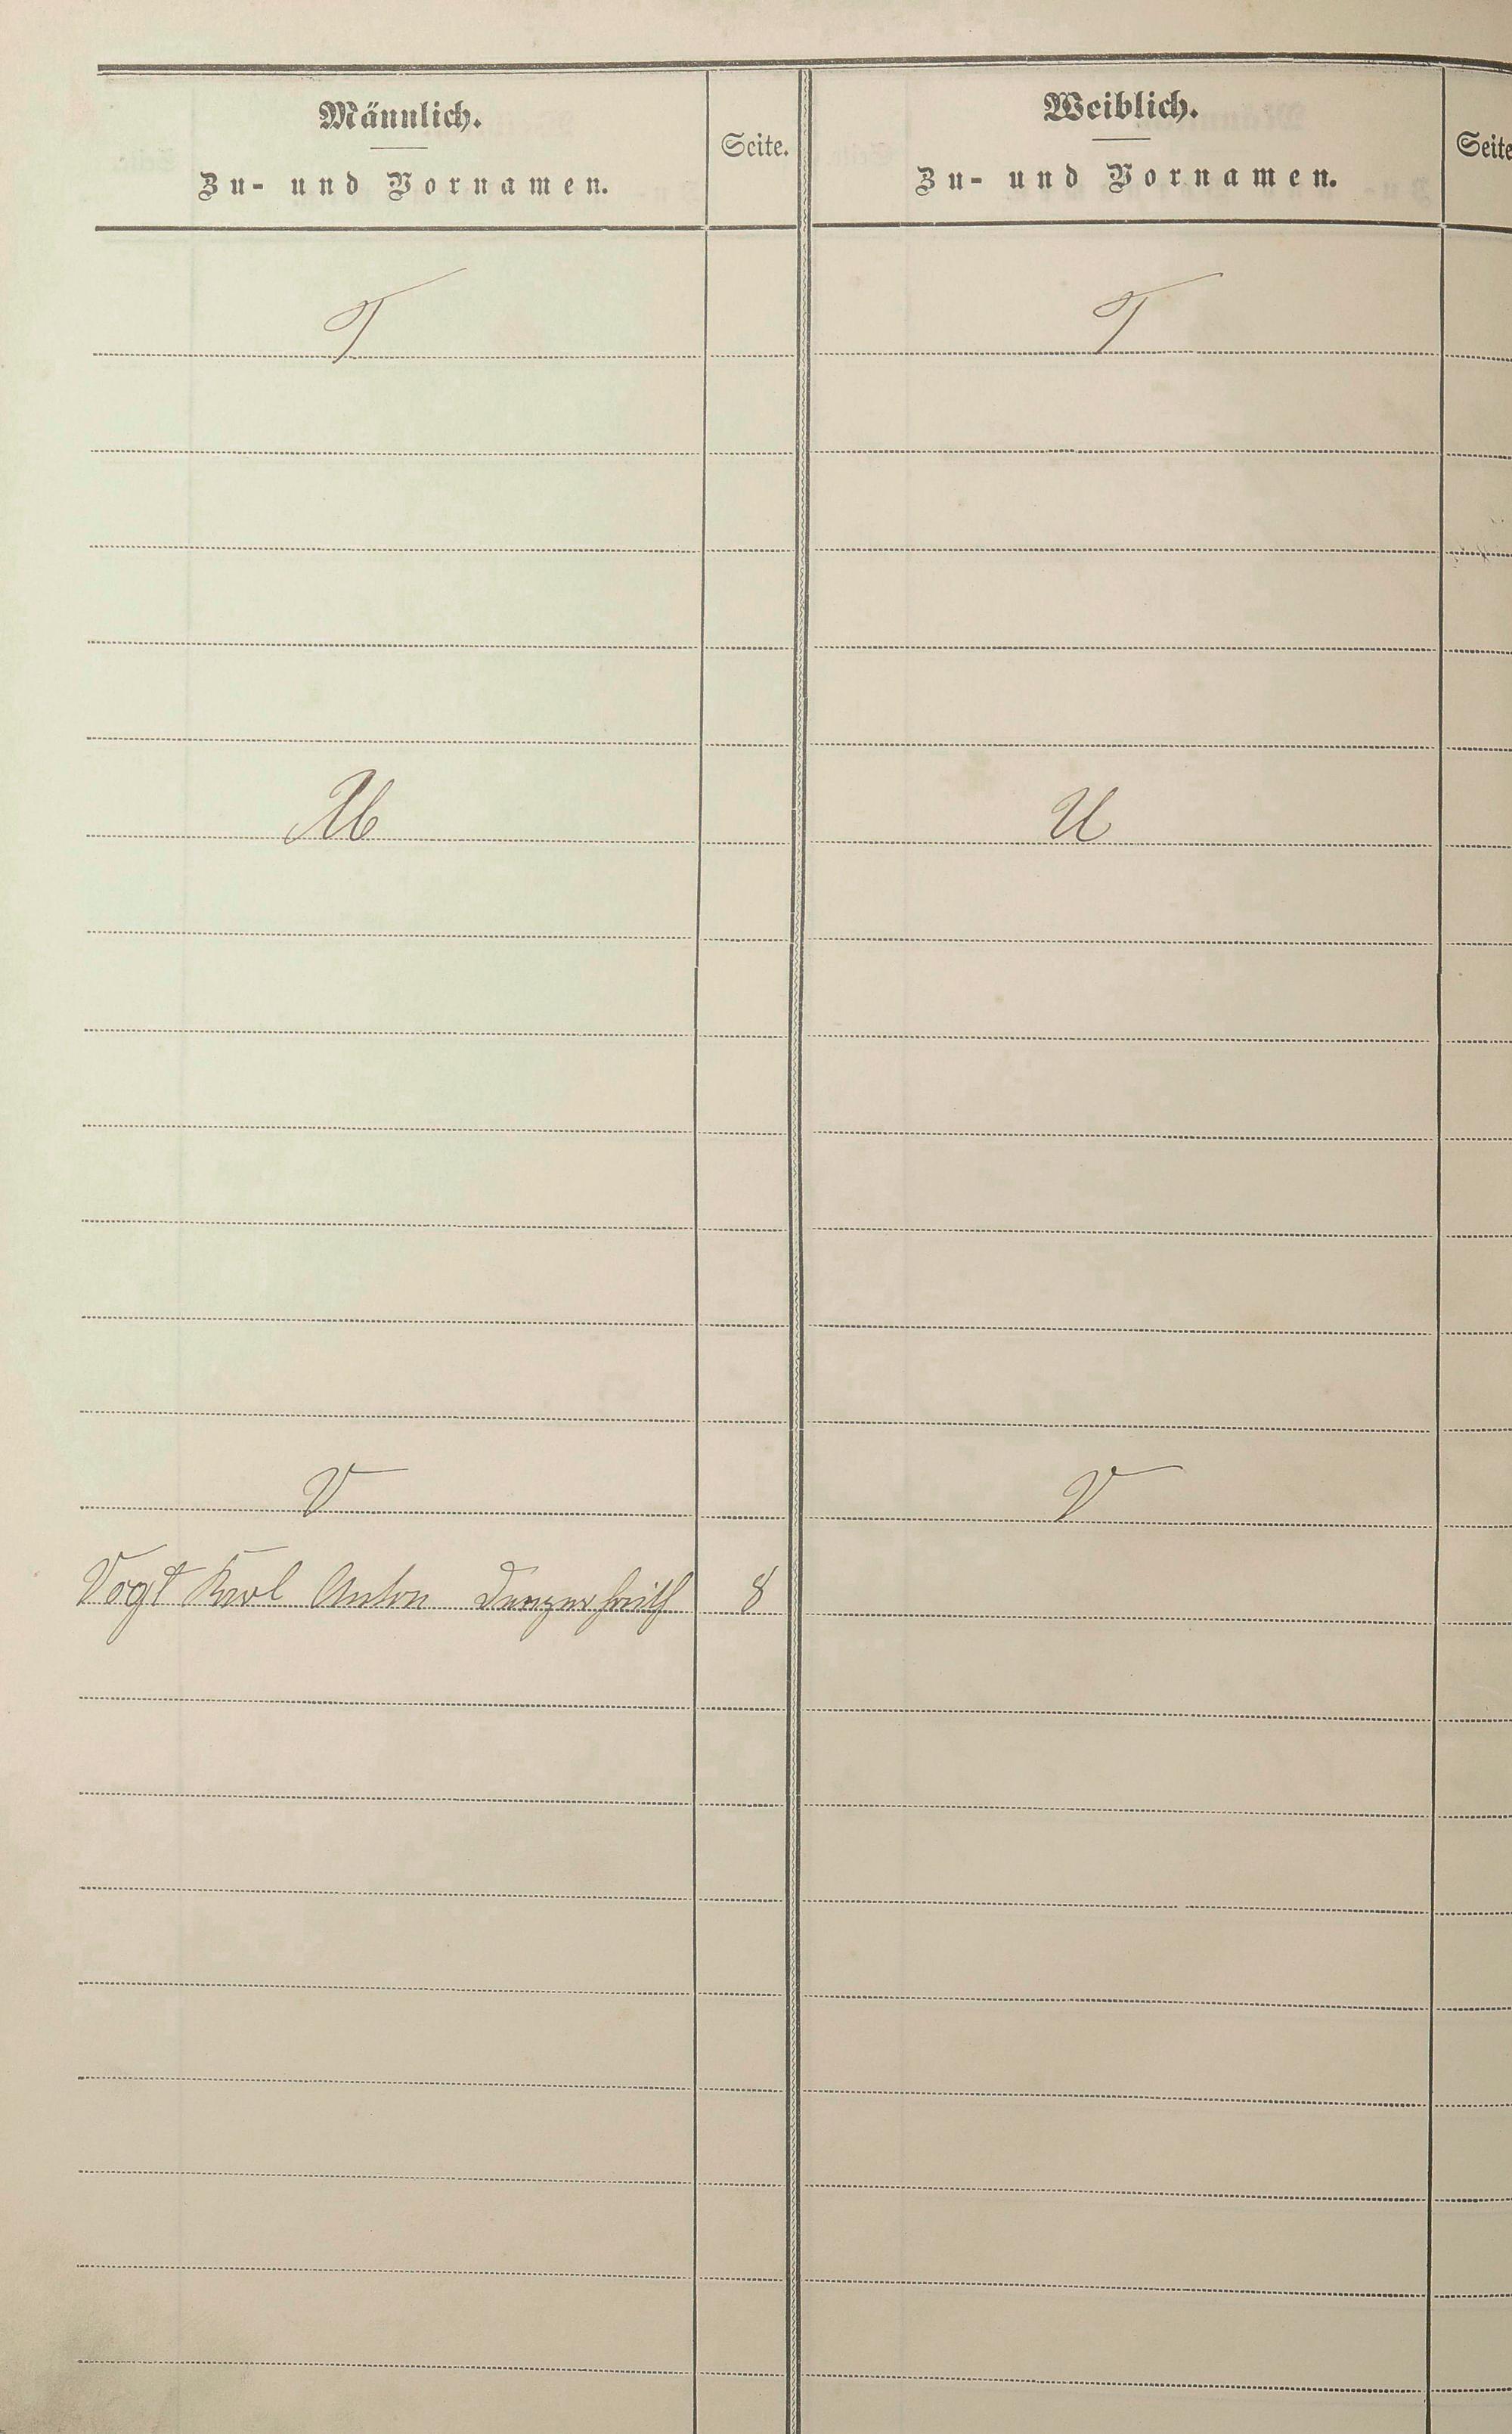 Männlich.
Zu- und Vornamen.
Seite.
Weiblich.
Zu- und Vornamen.
Seite
T
T
U
U
V
V
Vogt Karl Anton Danzersreith 8